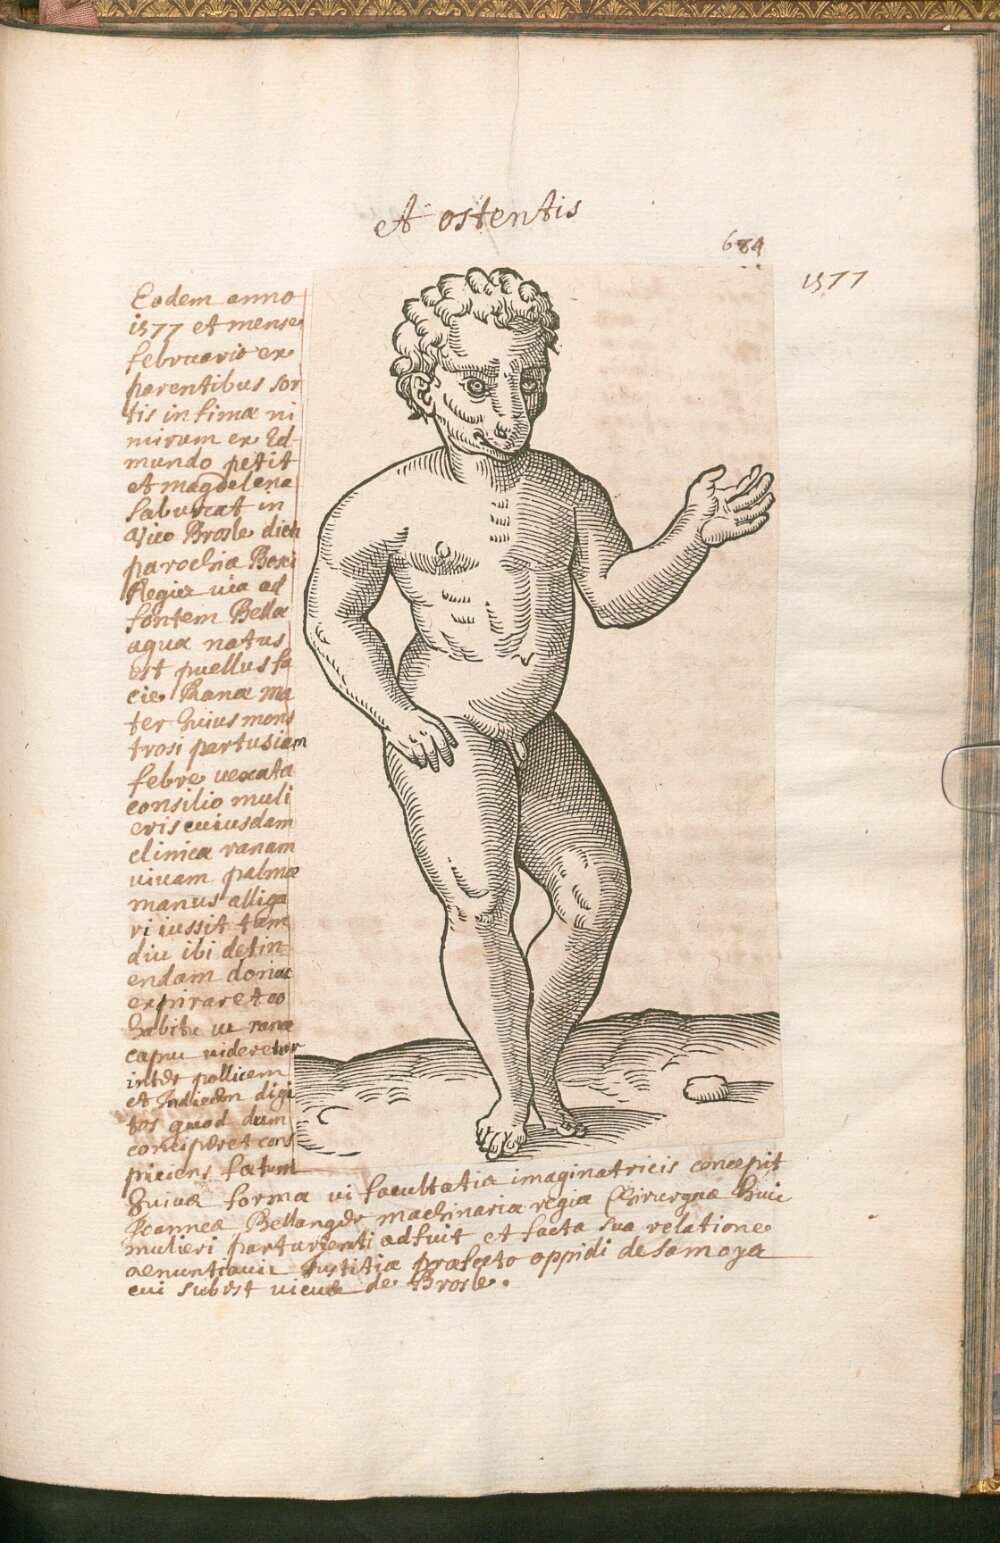 et ostentis
684
1577
Eodem anno
1577 et mense
februario ex
parentibus sor
tis infimæ ni
mirum ex Ed-
mundo petit
et magdelena
Saburcat in
vico Brosle dicti
parochia Bosci
Regier via ad
fontem Bellæ
aquæ natus
est puellus fa
cie Ranæ ma
ter huius mons
trosi partus iam
febre vexata
consilio muli
eris cuiusdam
clinicæ ranam
vivam palmæ
manus alliga
ri iussit tam
diu ibi detin-
endam donec
expiraret eo
habitu ut ranæ
caput videretur
inter pollicem
et Indicem digi
tos quod dum
conciperet cons
piciens fætum
huius formæ vi facultatis imaginatricis concepit
Joannes Bellanger machinariæ regiæ Chirurgus huic
mulieri parturienti adfuit et facta sua relatione
denuntiavit Justitiæ præfecto oppidi de Samoya
cui subest vicus de Brosle.